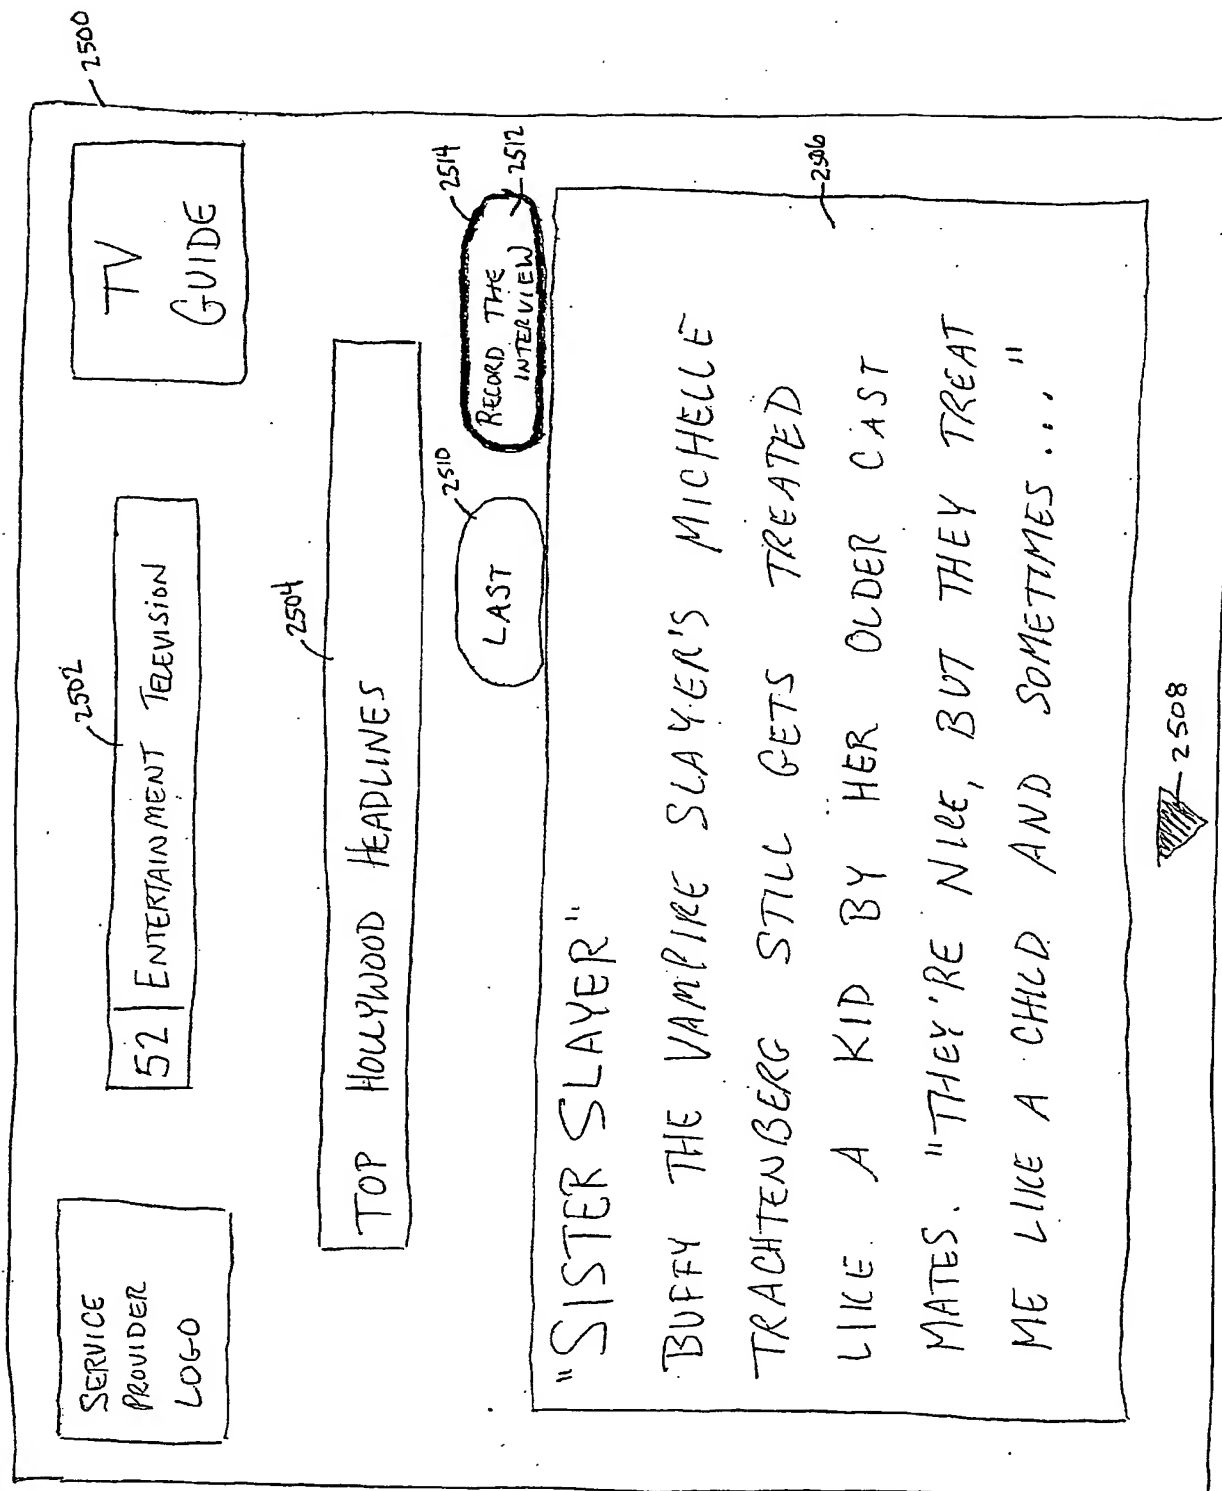 2500
SERVICE
PROVIDER
LOGO
2502
52 | ENTERTAINMENT TELEVISION
TV
GUIDE
2504
TOP HOLLYWOOD HEADLINES
2510
LAST
2514
RECORD THE
INTERVIEW
2512
"SISTER SLAYER"
2506
BUFFY THE VAMPIRE SLAYER'S MICHELLE
TRACHTENBERG STILL GETS TREATED
LIKE A KID BY HER OLDER CAST
MATES. "THEY'RE NICE, BUT THEY TREAT
ME LIKE A CHILD AND SOMETIMES..."
2508